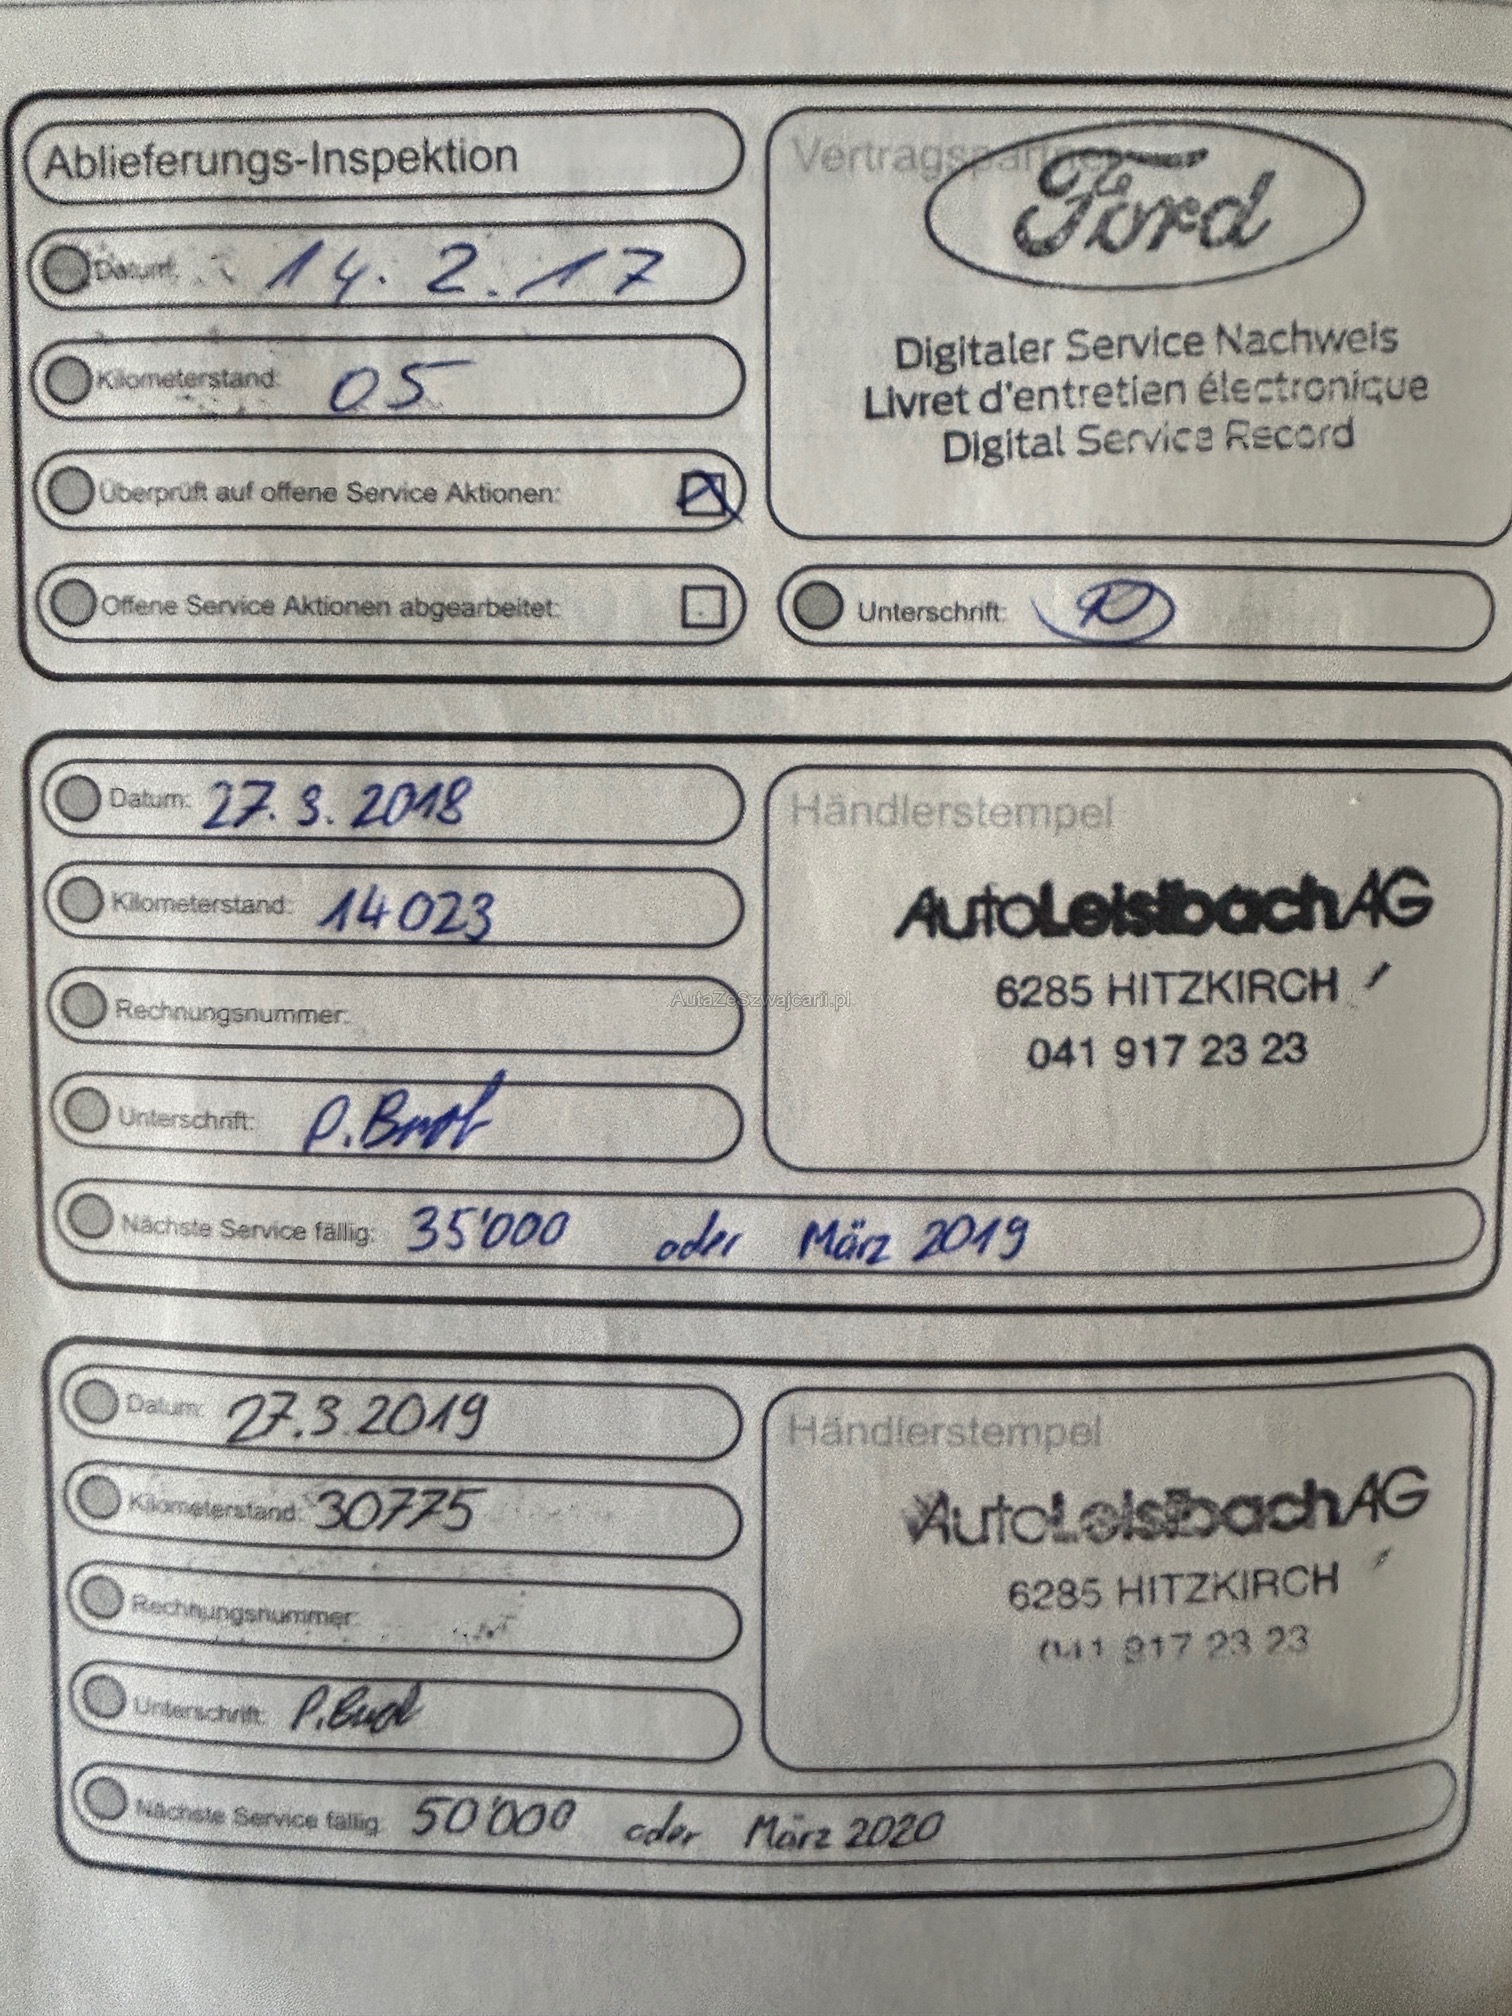 Ablieferungs-Inspektion
Datum: 14.2.17
Kilometerstand: 05
Überprüft auf offene Service Aktionen:
Offene Service Aktionen abgearbeitet:
Vertragspartner
Ford
Digitaler Service Nachweis
Livret d'entretien électronique
Digital Service Record
Unterschrift:
Datum: 27.3.2018
Kilometerstand: 14023
Rechnungsnummer:
Unterschrift: P.
Nächste Service fällig: 35'000 oder März 2019
Händlerstempel
AutoLeisibachAG
6285 HITZKIRCH
041 917 23 23
AutaZeSzwajcarii.pl
Datum: 27.3.2019
Kilometerstand: 30775
Rechnungsnummer:
Unterschrift: P.
Nächste Service fällig: 50'000 oder März 2020
Händlerstempel
AutoLeisibachAG
6285 HITZKIRCH
041 917 23 23